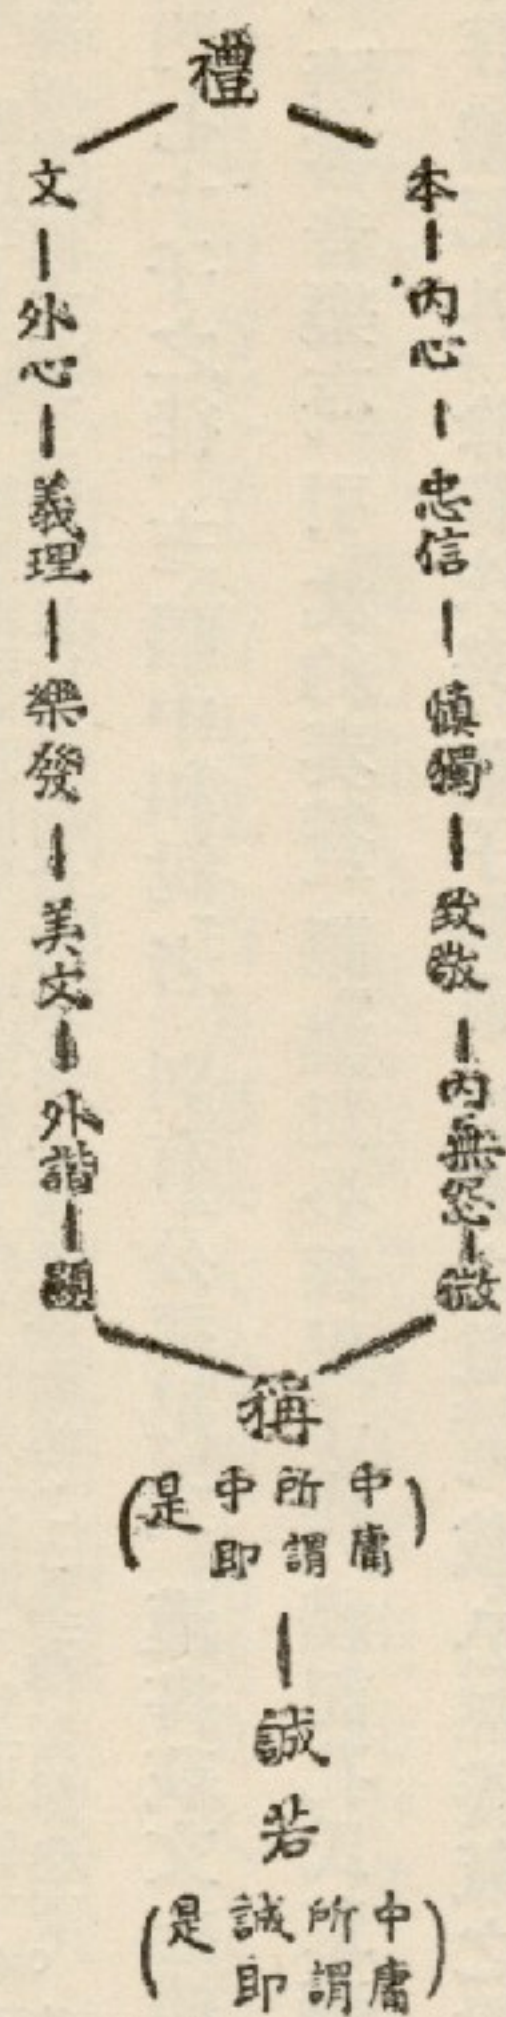 禮
本—內心—忠信—慎獨—致敬—內無怨—微
文—外心—義理—樂發—美文—外諧—顯
稱
(中庸所謂中即是)
誠若
(中庸所謂誠即是)